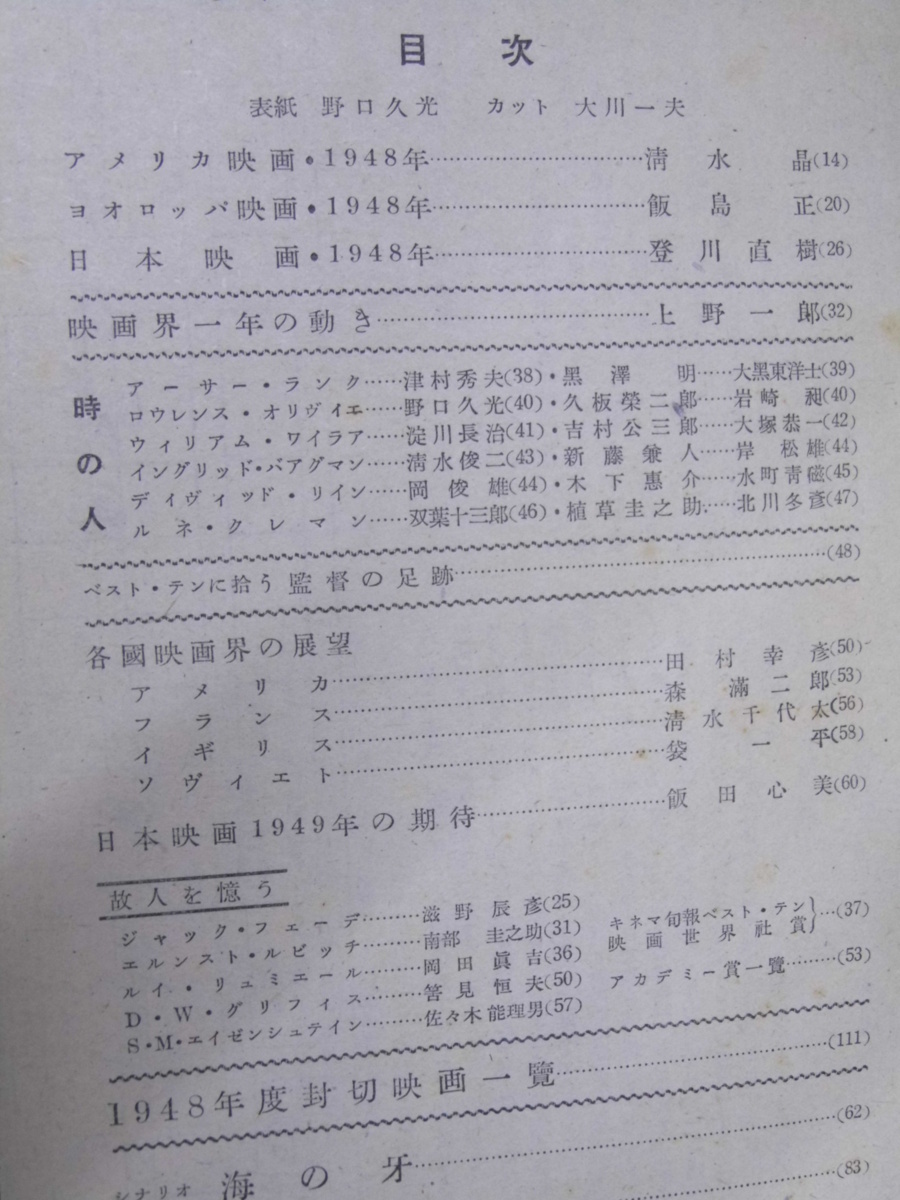 目次
表紙 野口久光 カット 大川一夫
アメリカ映画・1948年……清水晶(14)
ヨオロッパ映画・1948年……飯島正(20)
日本映画・1948年……登川直樹(26)
映画界一年の動き……上野一郎(32)
時の人
アーサー・ランク……津村秀夫(38)・黒澤明……大黒東洋士(39)
ロウレンス・オリヴィエ……野口久光(40)・久板榮二郎……岩崎昶(40)
ウィリアム・ワイラア……淀川長治(41)・吉村公三郎……大塚恭一(42)
イングリッド・バアグマン……清水俊二(43)・新藤兼人……岸松雄(44)
デイヴィッド・リイン……岡俊雄(44)・木下惠介……水町青磁(45)
ルネ・クレマン……双葉十三郎(46)・植草圭之助……北川冬彦(47)
ベスト・テンに拾う監督の足跡……(48)
各國映画界の展望
アメリカ……田村幸彦(50)
フランス……森滿二郎(53)
イギリス……清水千代太(56)
ソヴィエト……袋一平(58)
日本映画1949年の期待……飯田心美(60)
故人を憶う
ジャック・フェーデ……滋野辰彦(25)
エルンスト・ルビッチ……南部圭之助(31)
ルイ・リュミエール……岡田眞吉(36)
D・W・グリフィス……筈見恒夫(50)
S・M・エイゼンシュテイン……佐々木能理男(57)
キネマ旬報ベスト・テン
映画世界社賞……(37)
アカデミー賞一覽……(53)
1948年度封切映画一覽……(111)
シナリオ 海の牙……(62)
(83)